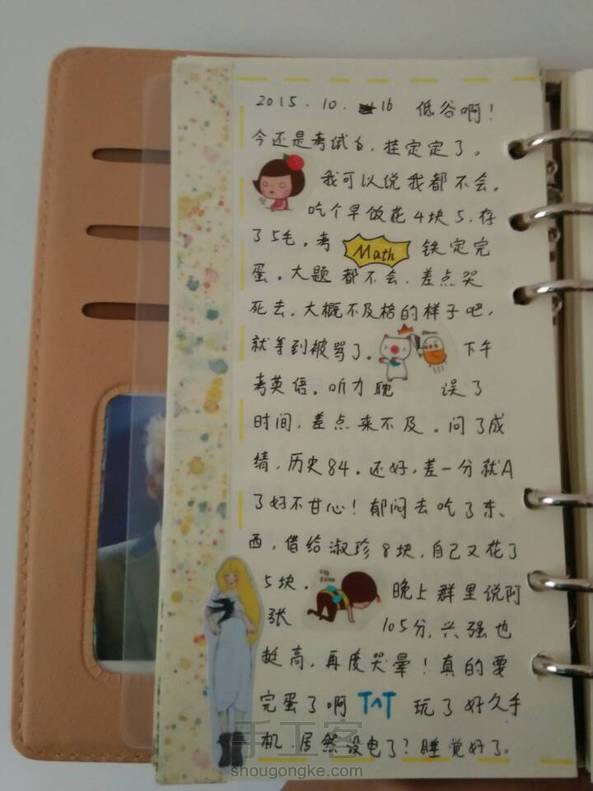 2015.10.16 低谷啊!
今还是考试日,挂定定了。
我可以说我都不会。
吃个早饭花4块5,存
了5毛。考 Math 铁定完
蛋。大题都不会,差点哭
死去。大概不及格的样子吧,
就等到被骂了。下午
考英语。听力耽误了
时间,差点来不及。问了成
绩,历史84。还好,差一分就A
了好不甘心!郁闷去吃了东
西,借给淑珍8块,自己又花了
5块。晚上群里说阿
张105分,兴强也
挺高,再度哭晕!真的要
完蛋了啊 TAT 玩了好久手
机,居然没电了?睡觉好了。
手工客
shougongke.com